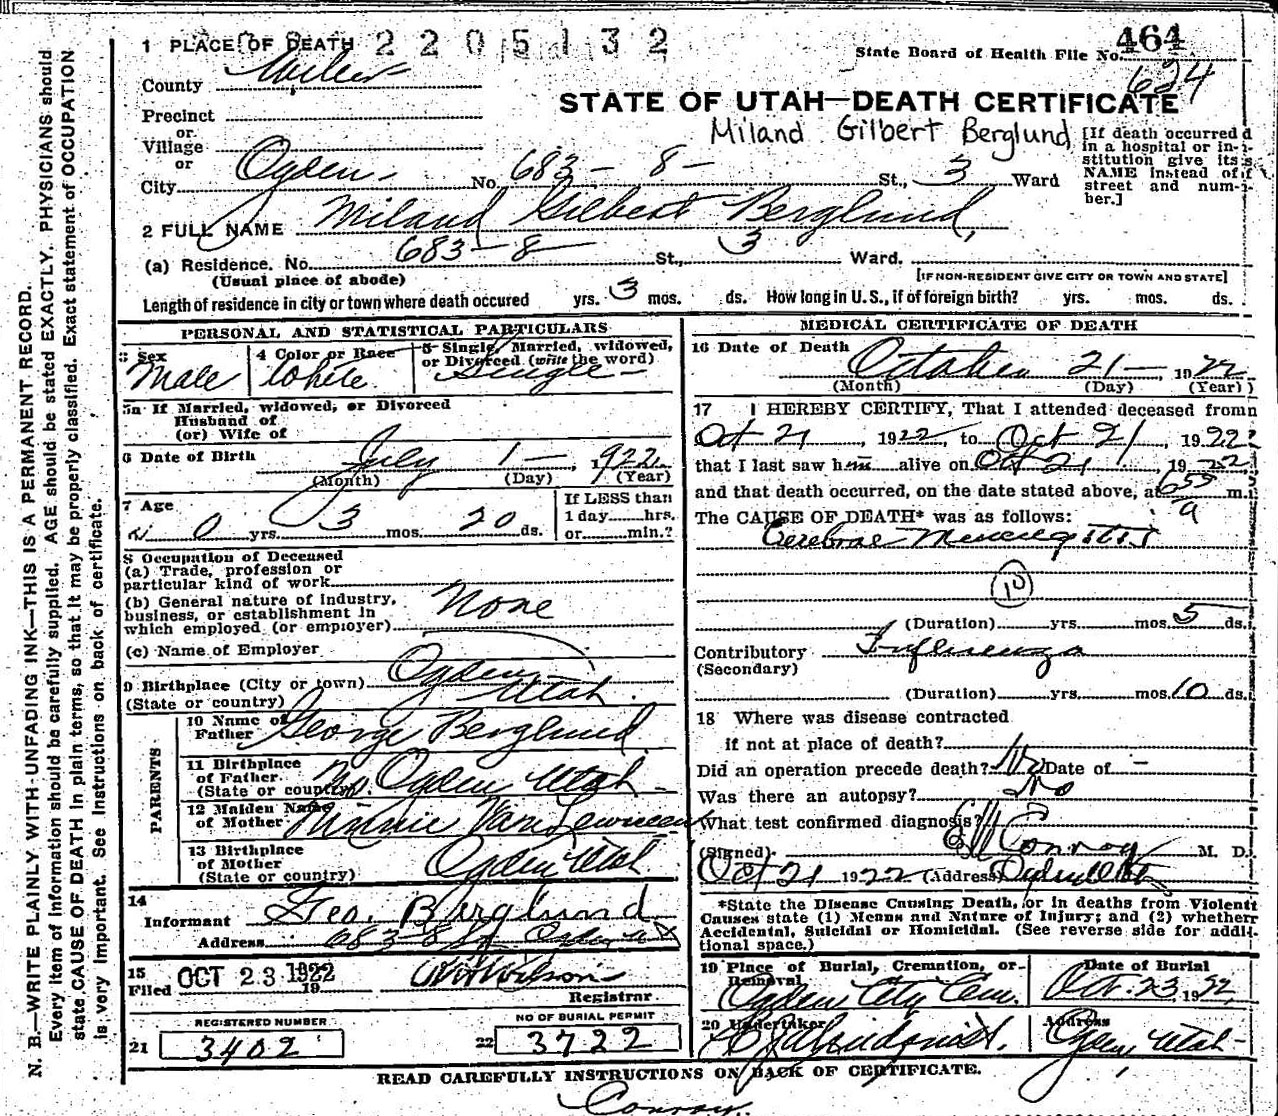 1 PLACE OF DEATH 2205132
State Board of Health File No. 464
County Weber
624
STATE OF UTAH—DEATH CERTIFICATE
Precinct
Miland Gilbert Berglund
or
Village
or
City Ogden No. 683-8- St., 3 Ward
[If death occurred d
in a hospital or in-i-
stitution give its s
NAME instead of f
street and num-i-
ber.]
2 FULL NAME Miland Gilbert Berglund,
(a) Residence. No. 683-8 St., 3 Ward.
(Usual place of abode)
[IF NON-RESIDENT GIVE CITY OR TOWN AND STATE]
Length of residence in city or town where death occured yrs. 3 mos. ds. How long in U. S., if of foreign birth? yrs. mos. ds.
PERSONAL AND STATISTICAL PARTICULARS
3 Sex
Male
4 Color or Race
White
5 Single, Married, widowed,
or Divorced (write the word)
Single
5a If Married, widowed, or Divorced
Husband of
(or) Wife of
6 Date of Birth July 1 - , 1922
(Month) (Day) (Year)
7 Age
0 yrs. 3 mos. 20 ds.
If LESS than
1 day hrs.
or min.?
8 Occupation of Deceased
(a) Trade, profession or
particular kind of work
(b) General nature of Industry,
business, or establishment in
which employed (or employer)
None
(c) Name of Employer
9 Birthplace (City or town) Ogden
(State or country) Utah.
PARENTS
10 Name of
Father George Berglund.
11 Birthplace
of Father No. Ogden Utah
(State or country)
12 Maiden Name
of Mother Minnie Van
13 Birthplace
of Mother Ogden Utah
(State or country)
14
Informant Geo. Berglund
Address 683 8 St Ogden Ut
15
Filed OCT 23 1922 Wilson
19
Registrar
REGISTERED NUMBER
21 3402
NO OF BURIAL PERMIT
22 3722
MEDICAL CERTIFICATE OF DEATH
16 Date of Death October 21 - 1922
(Month) (Day) (Year)
17 I HEREBY CERTIFY, That I attended deceased fromn
Oct 21, 1922, to Oct 21, 1922
that I last saw him alive on Oct 21, 1922
and that death occurred, on the date stated above, at 655 m.
a
The CAUSE OF DEATH* was as follows:
Cerebral Meningitis
10
(Duration) yrs. mos. 5 ds.
Contributory Influenza
(Secondary)
(Duration) yrs. mos. 10 ds.
18 Where was disease contracted
if not at place of death?
Did an operation precede death? No Date of -
Was there an autopsy? No
What test confirmed diagnosis?
(Signed) Conroy M. D.
Oct 21 1922 (Address) Ogden Ut
*State the Disease Causing Death, or in deaths from Violentt
Causes state (1) Means and Nature of Injury; and (2) whetherr
Accidental, Suicidal or Homicidal. (See reverse side for addi-
tional space.)
19 Place of Burial, Cremation, or
Removal
Ogden City Cem.
Date of Burial
Oct. 23 1922,
20 Undertaker
Lindquist.
Address
Ogden, Utah-
READ CAREFULLY INSTRUCTIONS ON BACK OF CERTIFICATE.
Conroy.
N. B.—WRITE PLAINLY WITH UNFADING INK—THIS IS A PERMANENT RECORD.
Every item of information should be carefully supplied. AGE should be stated EXACTLY. PHYSICIANS should
state CAUSE OF DEATH in plain terms, so that it may be properly classified. Exact statement of OCCUPATION
is very important. See Instructions on back of certificate.